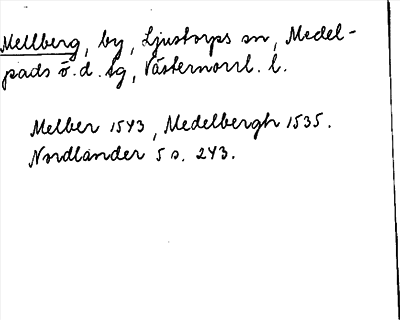 Mellberg, by, Ljustorps sn, Medel-
pads ö. d. tg, Västernorrl. l.
Melber 1543, Medelbergh 1535.
Nordlander 5 s. 243.